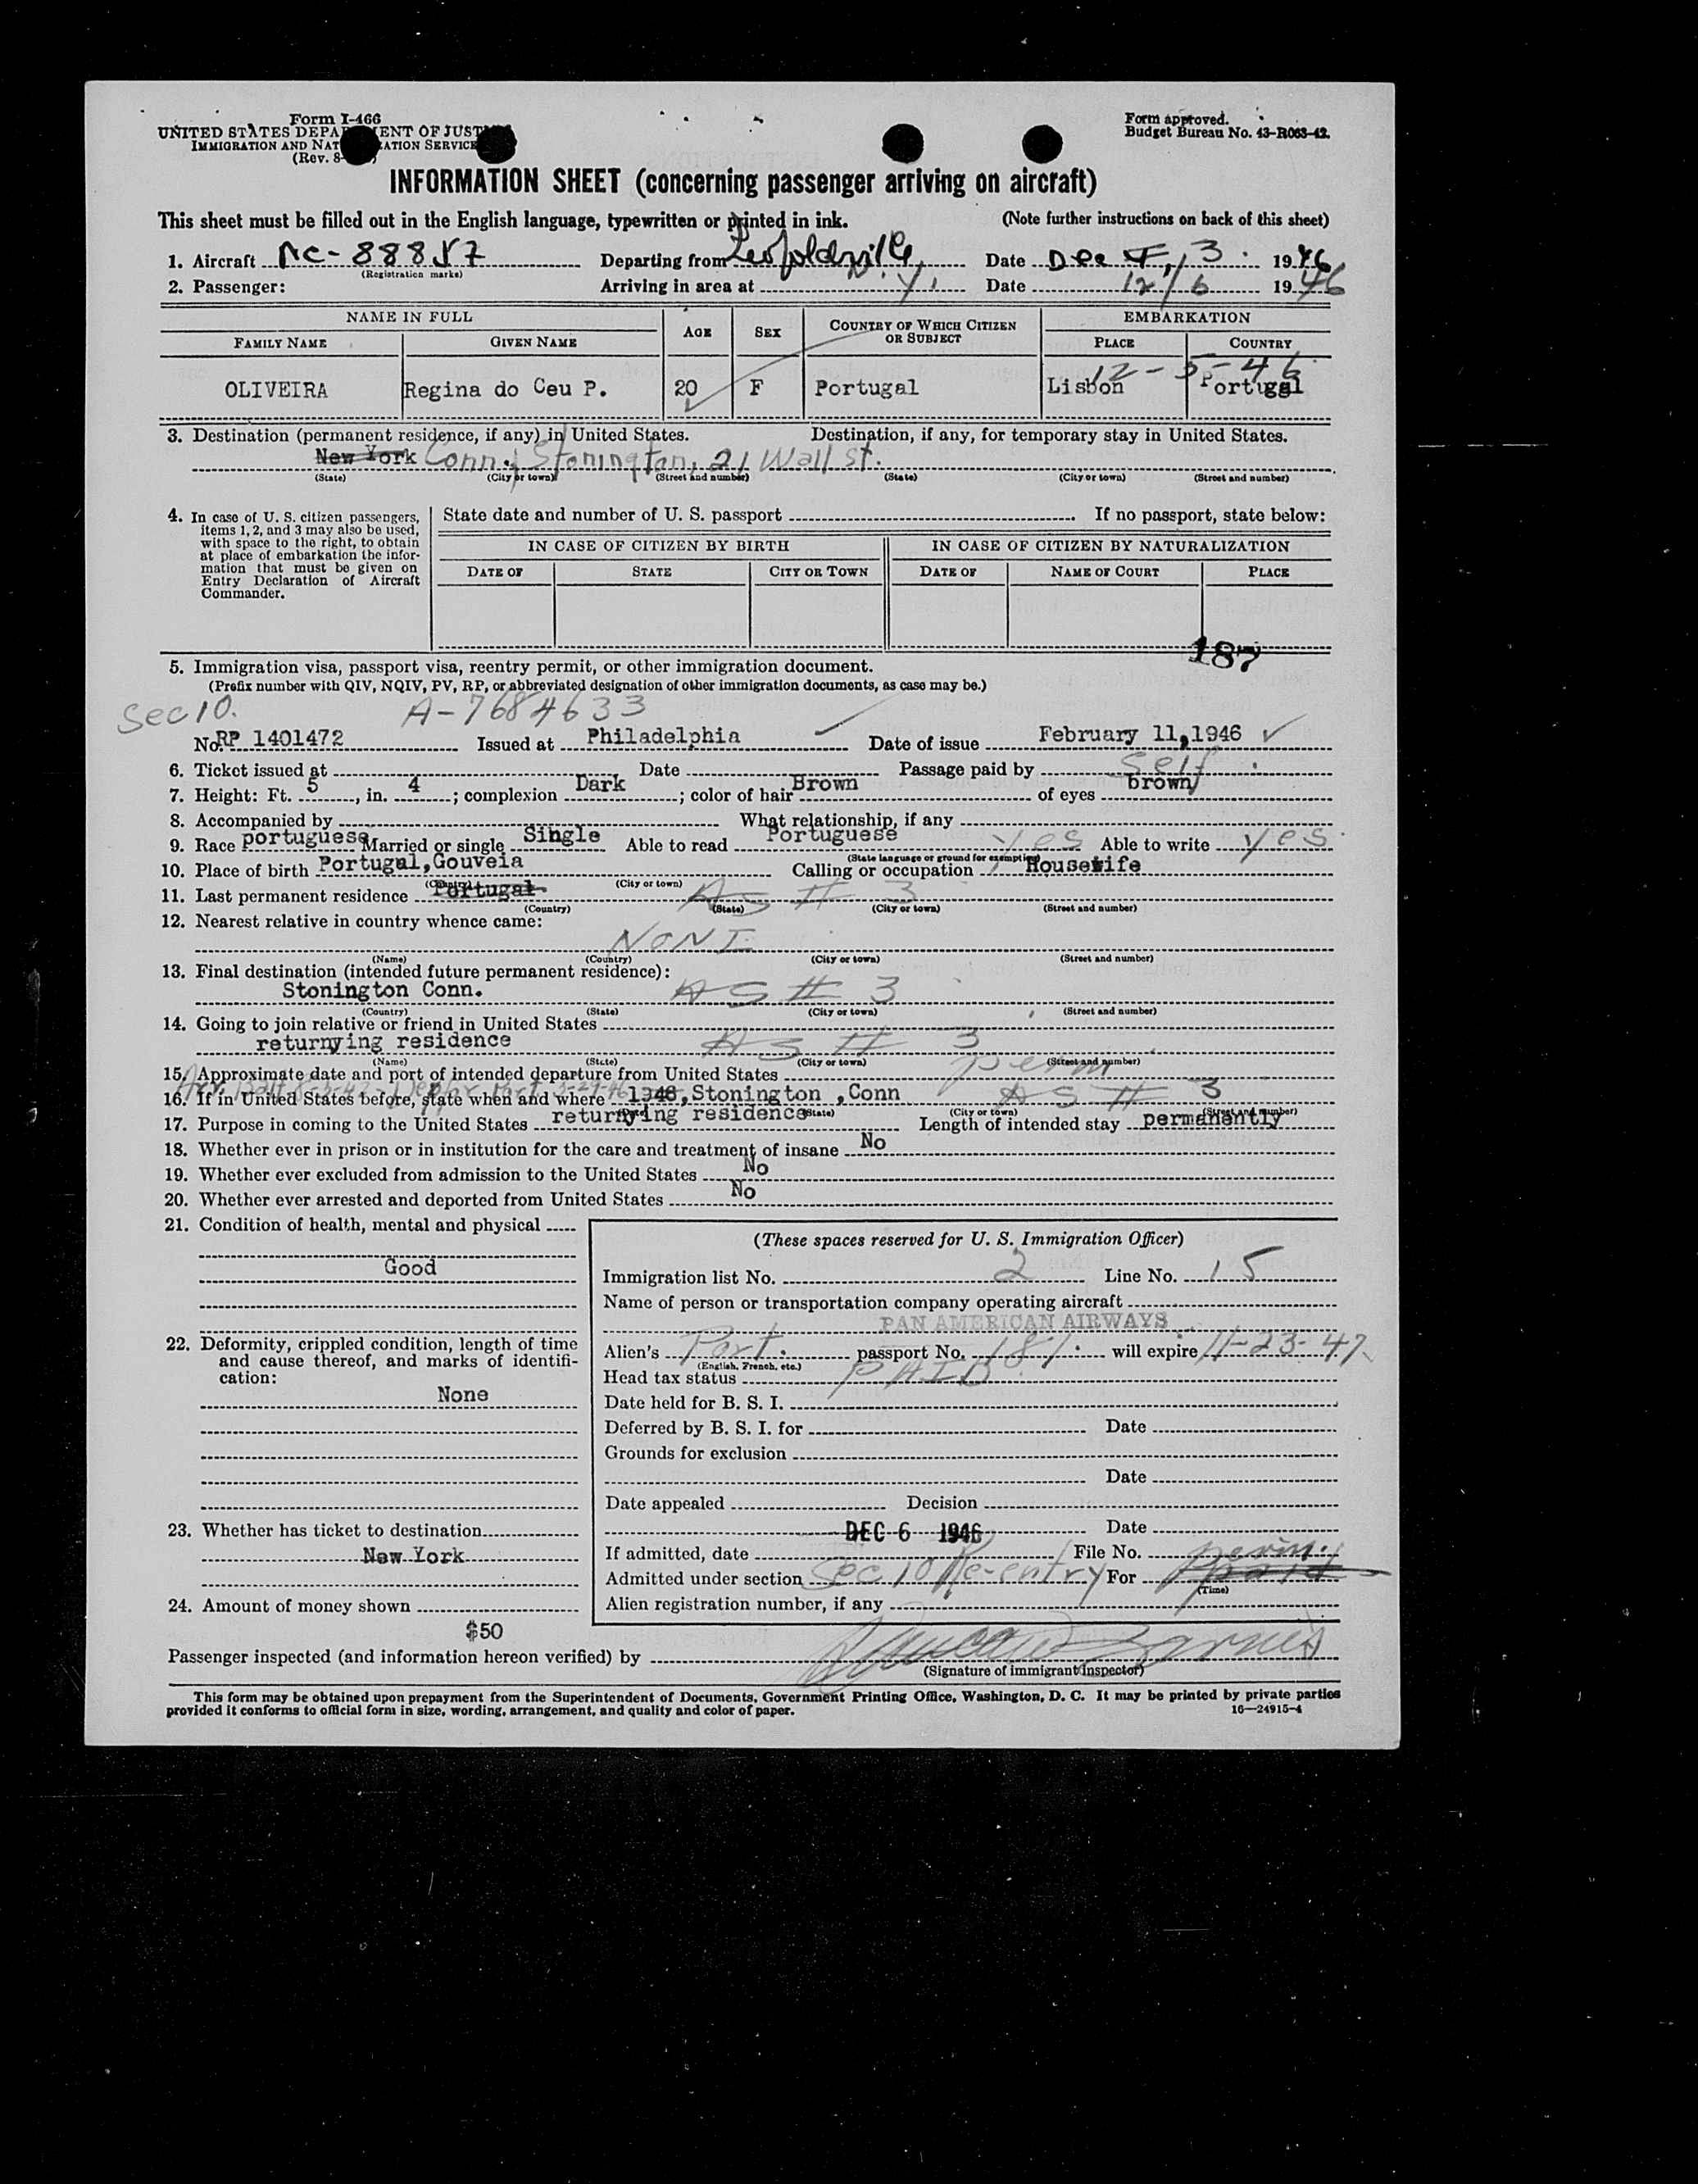 Form I-466
UNITED STATES DEPA ENT OF JUST
IMMIGRATION AND NAT ATION SERVICE
(Rev. 8- )
Form approved.
Budget Bureau No. 43-R063-42.
INFORMATION SHEET (concerning passenger arriving on aircraft)
This sheet must be filled out in the English language, typewritten or printed in ink. (Note further instructions on back of this sheet)
1. Aircraft NC-88857 Departing from Leopoldville Date Dec 3 1946
(Registration marks)
2. Passenger: Arriving in area at N.Y. Date 12/6 1946
NAME IN FULL AGE SEX COUNTRY OF WHICH CITIZEN OR SUBJECT EMBARKATION
FAMILY NAME GIVEN NAME PLACE COUNTRY
12-5-46
OLIVEIRA Regina do Ceu P. 20 F Portugal Lisbon Portugal
3. Destination (permanent residence, if any) in United States. Destination, if any, for temporary stay in United States.
New York Conn. Stonington, 21 Wall St.
(State) (City or town) (Street and number) (State) (City or town) (Street and number)
4. In case of U. S. citizen passengers, items 1, 2, and 3 may also be used, with space to the right, to obtain at place of embarkation the information that must be given on Entry Declaration of Aircraft Commander.
State date and number of U. S. passport If no passport, state below:
IN CASE OF CITIZEN BY BIRTH IN CASE OF CITIZEN BY NATURALIZATION
DATE OF STATE CITY OR TOWN DATE OF NAME OF COURT PLACE
187
5. Immigration visa, passport visa, reentry permit, or other immigration document.
(Prefix number with QIV, NQIV, PV, RP, or abbreviated designation of other immigration documents, as case may be.)
Sec 10. A-7684633
No. RP 1401472 Issued at Philadelphia Date of issue February 11,1946
6. Ticket issued at Date Passage paid by Self
7. Height: Ft. 5, in. 4; complexion Dark; color of hair Brown of eyes brown
8. Accompanied by What relationship, if any
9. Race portuguese Married or single Single Able to read Portuguese yes Able to write yes
(State language or ground for exemption)
10. Place of birth Portugal,Gouveia Calling or occupation Housewife
(Country) (City or town)
11. Last permanent residence Portugal AS # 3
(Country) (State) (City or town) (Street and number)
12. Nearest relative in country whence came:
NONE
(Name) (Country) (City or town) (Street and number)
13. Final destination (intended future permanent residence):
Stonington Conn. AS # 3
(Country) (State) (City or town) (Street and number)
14. Going to join relative or friend in United States
returnying residence AS # 3
(Name) (State) (City or town) (Street and number)
15. Approximate date and port of intended departure from United States perm
16. If in United States before, state when and where 1946,Stonington ,Conn AS # 3
(Date) (State) (City or town) (Street and number)
17. Purpose in coming to the United States returnying residence Length of intended stay permanently
18. Whether ever in prison or in institution for the care and treatment of insane No
19. Whether ever excluded from admission to the United States No
20. Whether ever arrested and deported from United States No
21. Condition of health, mental and physical
Good
22. Deformity, crippled condition, length of time and cause thereof, and marks of identification:
None
23. Whether has ticket to destination
New York
24. Amount of money shown
$50
(These spaces reserved for U. S. Immigration Officer)
Immigration list No. 2 Line No. 15
Name of person or transportation company operating aircraft
PAN AMERICAN AIRWAYS
Alien's Port. passport No. 181 will expire 11-23-47
(English, French, etc.)
Head tax status PAID
Date held for B. S. I.
Deferred by B. S. I. for Date
Grounds for exclusion
Date
Date appealed Decision
DEC 6 1946 Date
If admitted, date File No.
Admitted under section Sec 10 Re-entry For perm.
(Time)
Alien registration number, if any
Passenger inspected (and information hereon verified) by
(Signature of immigrant inspector)
This form may be obtained upon prepayment from the Superintendent of Documents, Government Printing Office, Washington, D. C. It may be printed by private parties
provided it conforms to official form in size, wording, arrangement, and quality and color of paper. 16—24915-4